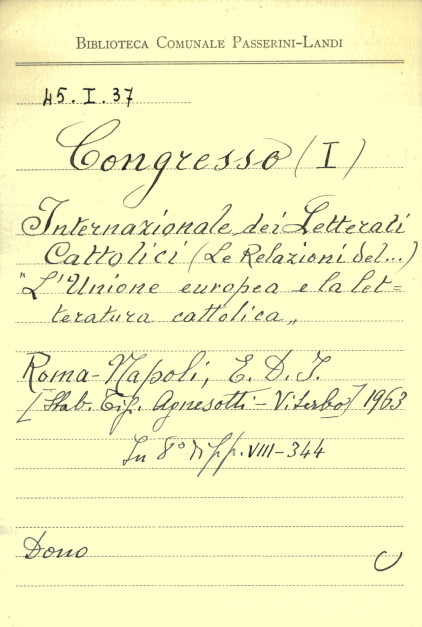 BIBLIOTECA COMUNALE PASSERINI-LANDI
45.I.37
Congresso (I)
Internazionale dei Letterati
Cattolici (Le Relazioni del...)
"L'Unione europea e la let=
teratura cattolica„
Roma-Napoli, E. D. I.
[Stab. Tip. Agnesotti-Viterbo] 1963
In 8° di pp. VIII-344
Dono